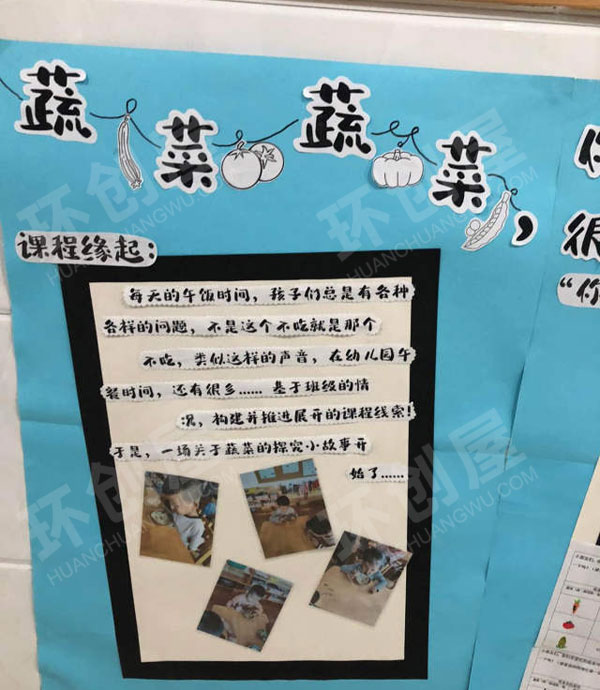 蔬菜蔬菜,
很
"你
课程缘起:
每天的午饭时间,孩子们总是有各种
各样的问题,不是这个不吃就是那个
不吃,类似这样的声音,在幼儿园午
餐时间,还有很多......基于班级的情
况,构建并推进展开的课程线索!
于是,一场关于蔬菜的探究小故事开
始了......
环创屋
HUANCHUANGWU.COM
环创屋
HUANCHUANGWU.COM
环创屋
HUANCHUANGWU.COM
环创屋
HUANCHUANGWU.COM